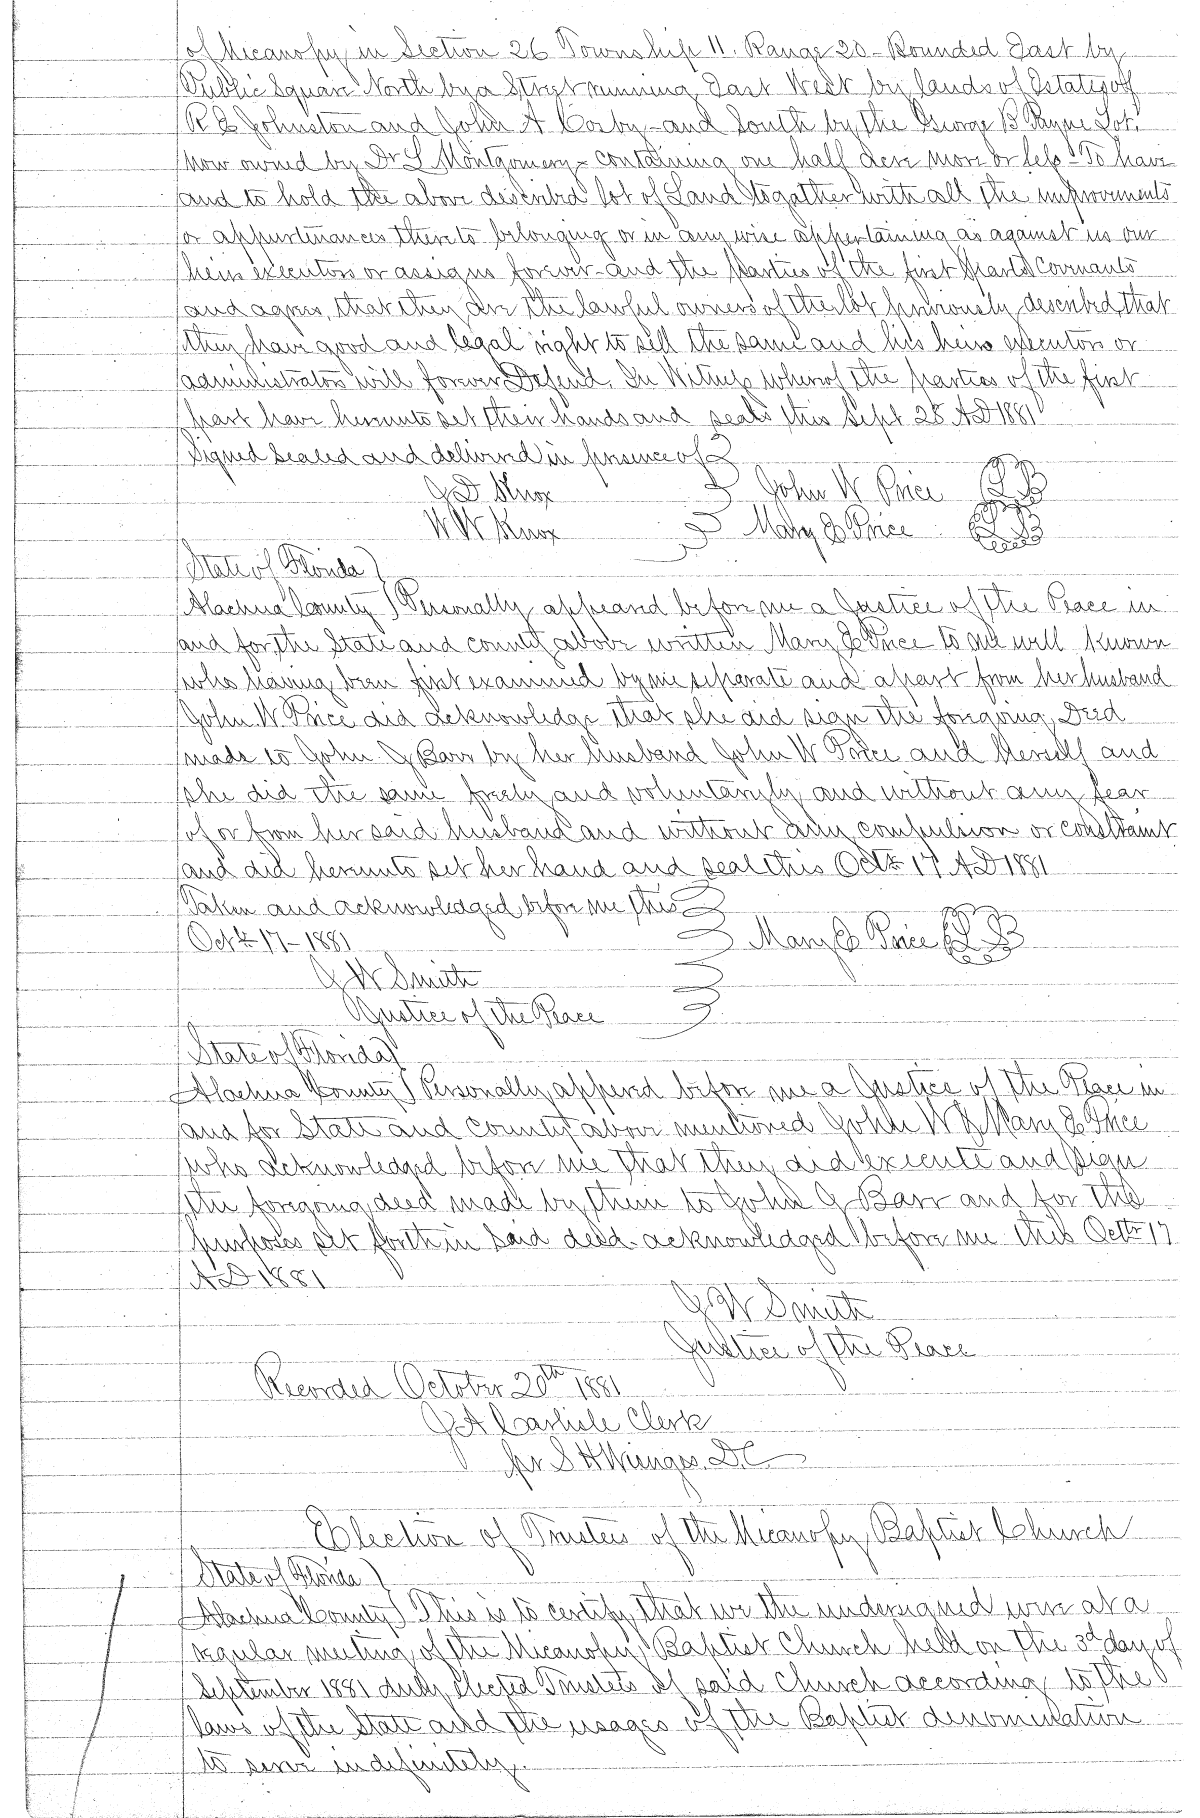 of Micanopy in Section 26 Township 11. Range 20 - Bounded East by
Public Square North by a Street running East West by lands of Estates of
R E Johnston and John A Cosby - and South by the George B Payne Lot.
now owned by Dr L Montgomery - containing one half acre more or less - To have
and to hold the above described lot of Land together with all the improvements
or appurtenances thereto belonging or in any wise appertaining as against us our
heirs executors or assigns forever - and the parties of the first part covenants
and agrees, that they are the lawful owners of the lot previously described, that
they have good and legal right to sell the same and his heirs executors or
administrators will forever Defend. In Witness whereof the parties of the first
part have hereunto set their hands and seals this Sept 28 AD 1881
Signed Sealed and delivered in presence of
J D Knox John W Price
W W Knox Mary E Price
State of Florida )
Alachua County ) Personally appeared before me a Justice of the Peace in
and for the State and county above written Mary E Price to me well known
who having been first examined by me separate and apart from her husband
John W. Price did acknowledge that she did sign the foregoing Deed
made to John G Barr by her husband John W Price and Herself and
she did the same freely and voluntarily and without any fear
of or from her said husband and without any compulsion or constraint
and did hereunto set her hand and seal this Octr 17 AD 1881
Taken and acknowledged before me this
Octr 17 - 1881 Mary E Price
J W Smith
Justice of the Peace
State of Florida )
Alachua County ) Personally appered before me a Justice of the Peace in
and for State and County above mentioned John W & Mary E Price
who acknowledged before me that they did execute and sign
the foregoing deed made by them to John G Barr and for the
purposes set forth in said deed - acknowledged before me this Octr 17
AD 1881
J W Smith
Justice of the Peace
Recorded October 20th 1881
J A Carlisle Clerk
pr S H Wienges. D.C
Election of Trustees of the Micanopy Baptist Church
State of Florida )
Alachua County ) This is to certify that we the undersigned were at a
regular meeting of the Micanopy Baptist Church held on the 3d day of
September 1881 duly elected Trustees of said Church according to the
laws of the State and the usages of the Baptist denomination
to serve indefinitely.